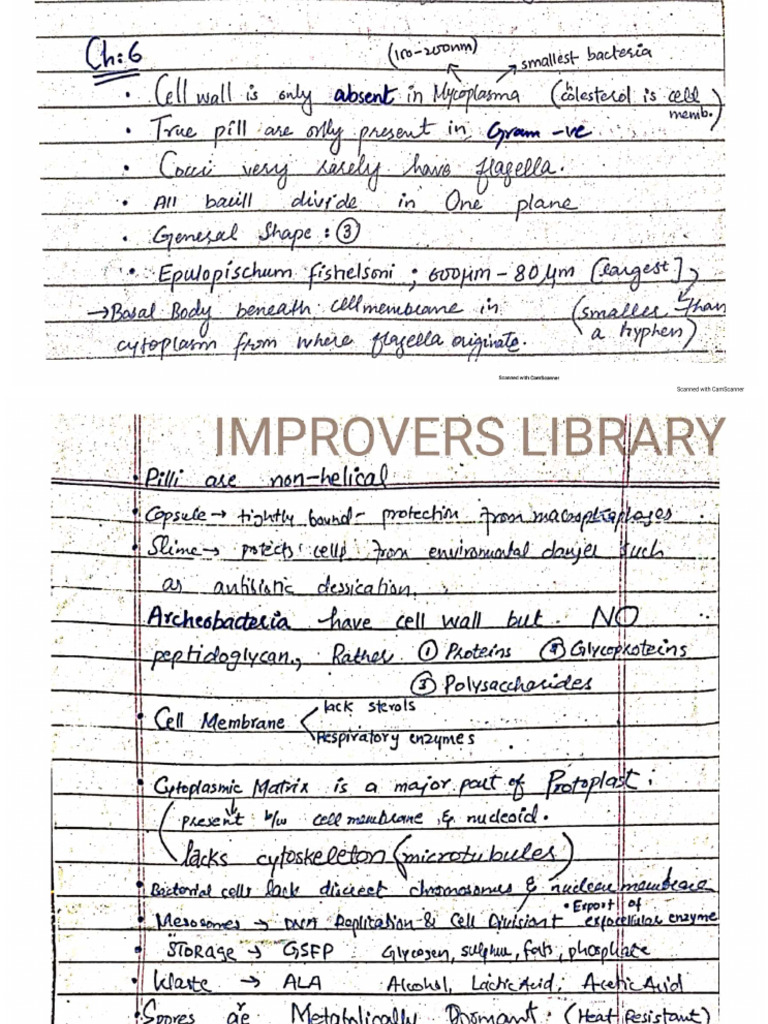 (100-200nm)
Ch:6
smallest bacteria
• Cell wall is only absent in Mycoplasma (colesterol is cell memb.)
• True pill are only present in Gram -ve
• Cocci very rarely have flagella.
• All bacill divide in One plane
• General Shape: ③
• Epulopischum fishelsoni ; 600µm - 80µm [largest],
→ Basal Body beneath cell membrane in (smaller than
cytoplasm from where flagella originate. a hyphen)
Scanned with CamScanner
Scanned with CamScanner
IMPROVERS LIBRARY
• Pilli are non-helical
• Capsule → tightly bound - protection from macrophages.
• Slime → protects cells from environmental danger such
as antibiotic dessication.
Archeobacteria have cell wall but NO
peptidoglycan, Rather ① Proteins ② Glycoproteins
③ Polysaccharides
• Cell Membrane lack sterols
Respiratory enzymes
• Cytoplasmic Matrix is a major part of Protoplast:
(present b/w cell membrane & nucleoid.
lacks cytoskeleton (microtubules)
• Bacterial cells lack discreet chromosomes & nuclear membrane
• Export of
• Mesosomes → DNA Replication & Cell Division extracellular enzyme
• STORAGE → GSFP Glycogen, sulphur, fats, phosphate
• Waste → ALA Alcohol, Lactic Acid, Acetic Acid
• Spores are Metabolically Dormant. (Heat Resistant)